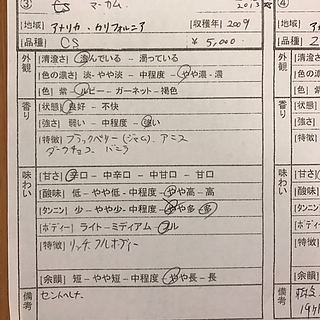 ③ CS マーカム 2013
[地域] アメリカ・カリフォルニア [収穫年] 2009
[品種] CS ¥5,000
外観
[清澄さ] 澄んでいる - 濁っている
[色の濃さ] 淡 - やや淡 - 中程度 - やや濃 - 濃
[色] 紫 - ルビー - ガーネット - 褐色
香り
[状態] 良好 - 不快
[強さ] 弱い - 中程度 - 強い
[特徴] ブラックベリー(ジャム)、アニス
ダークチョコ バニラ
味わい
[甘さ] 辛口 - 中辛口 - 中甘口 - 甘口
[酸味] 低 - やや低 - 中程度 - やや高 - 高
[タンニン] 少 - やや少 - 中程度 - やや多 - 多
[ボディー] ライト - ミディアム - フル
[特徴] リッチ、フルボディー
[余韻] 短 - やや短 - 中程度 - やや長 - 長
備考
セントヘレナ
④
[地域]
[品種] 2
外観
[清澄
[色の
[色]
香り
[状態]
[強さ]
[特徴]
味わい
[甘さ]
[酸味]
[タンニ
[ボディ
[特徴]
[余韻]
備考